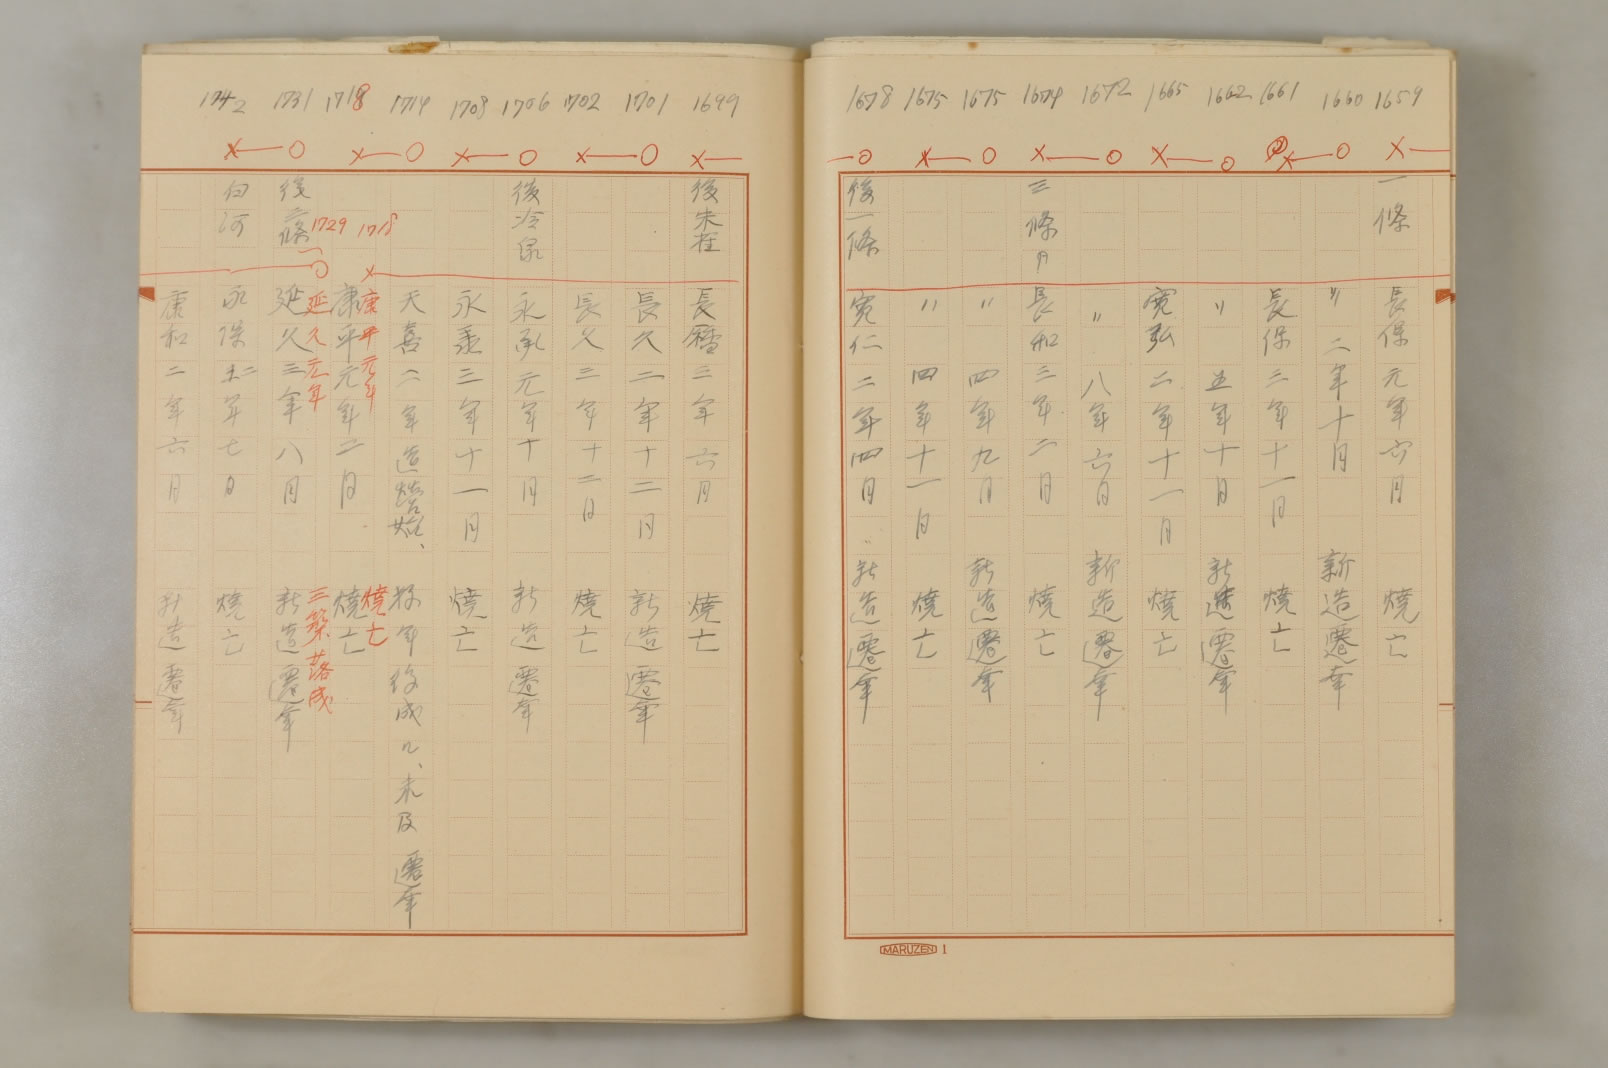 1659
一條
長保元年六月 燒亡
1660
〃 二年十月 新造遷幸
1661
長保三年十一月 燒亡
1662
〃 五年十月 新造遷幸
1665
寛弘二年十一月 燒亡
1672
〃 八年六月 新造遷幸
1674
三條
長和三年二月 燒亡
1675
〃 四年九月 新造遷幸
1675
〃 四年十一月 燒亡
1678
後一條
寛仁二年四月 新造遷幸
MARUZEN 1
1699
後朱雀
長暦三年六月 燒亡
1701
長久二年十二月 新造遷幸
1702
長久三年十二月 燒亡
1706
後冷泉
永承元年十月 新造遷幸
1708
永承三年十一月 燒亡
1714
天喜二年造營始、
翌年 成ル、未及遷幸
1718
康平元年二月 燒亡
1718
康平元年 燒亡
1729
延久元年 三築落成
1731
後三條
延久三年八月 新造遷幸
1742
白河
永保二年七月 燒亡
康和二年六月 新造遷幸